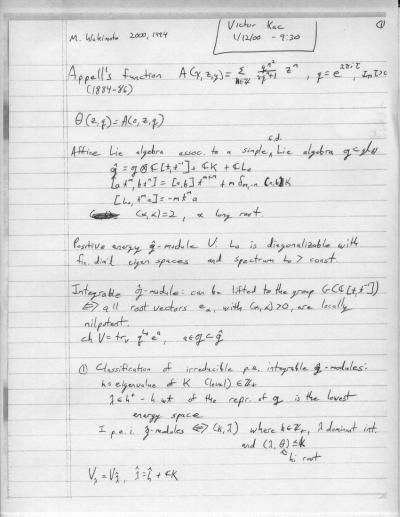 ①
M. Wakimoto 2000, 1994
Victor Kac
1/12/00 - 9:30
Appell's function A(x,z,q) = Σ_{n∈Z} q^{n²} z^n , q = e^{2πiτ}, Im τ>0
(1884-86)
Θ(z,q) = A(0,z,q)
f.d.
Affine Lie algebra assoc. to a simple Lie algebra
ĝ = g ⊗ C[t,t⁻¹] + CK + CL₀
[a t^m, b t^n] = [a,b] t^{m+n} + m δ_{m,-n} (a,b)K
[L₀, t^m a] = -m t^m a
(α,α)=2, α long root.
Positive energy ĝ-module V: L₀ is diagonalizable with
fin. dim'l eigen spaces and spectrum L₀ > const.
Integrable ĝ-module: can be lifted to the group G(C[t,t⁻¹])
⟺ all root vectors e_α, with (α,α)>0, are locally
nilpotent.
ch V = tr_V q^{L₀} e^a, a∈g⊂ĝ
① Classification of irreducible p.e. integrable ĝ-modules:
k = eigenvalue of K (level) ∈ Z₊
λ∈h* - h wt of the repr. of g is the lowest
energy space
I p.e.i. ĝ-modules ⟺ (k,λ) where k∈Z₊, λ dominant int.
and (λ,θ) ≤ k
hi root
V_λ = V_λ̂, ĥ + CK